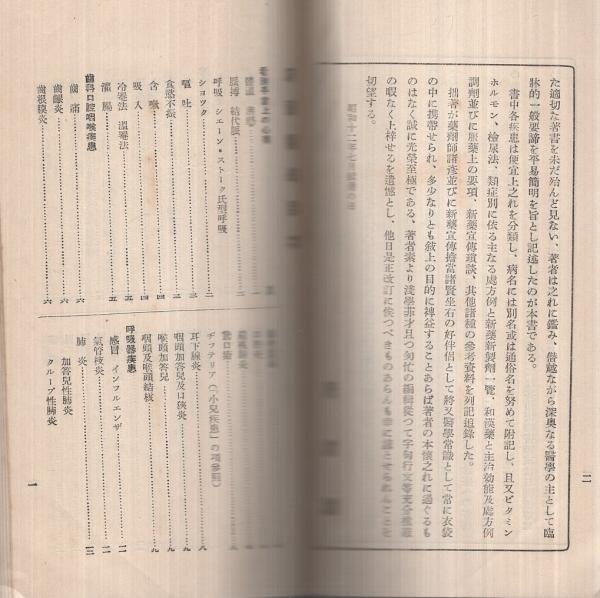 二
た適切た著書を未だ殆んど見ない、著者は之れに鑑み、僭越ながら深奥なる醫學の主として臨
牀的一般要諦を平易簡明を旨とし記述したのが本書である。
書中各疾患は便宜上之れを分類し、病名には別名或は通俗名を努めて附記し、且又ビタミン
ホルモン、檢尿法、類症別に依る主なる處方例と新藥新製劑一覽、和漢藥と主治効能及處方例
調劑並びに服藥上の要項、新藥宣傳瑣談、其他諸種の參考資料を列記追錄した。
拙著が藥劑師諸彦並びに新藥宣傳擔當諸賢坐右の好伴侶として將又醫學常識として常に衣袋
の中に携帶せられ、多少なりとも敍上の目的に裨益することあらば著者の本懷之れに過ぐるも
のはなく誠に光榮至極である、著者素より淺學菲才且つ匆忙の
の暇なく上梓せるを遺憾とし、他日是正改訂に俟つべきもの
切望する。
昭和十二年七月
脈搏 結代脈
呼吸 シェーン・ストーク氏型呼吸
ショック
嘔吐……三
食慾不振……三
含嗽……四
吸入……四
冷罨法 溫罨法……五
灌腸……五
齒科口腔咽喉疾患
齒痛……六
齒齦炎……六
齒根膜炎……六
ヂフテリア(「小兒疾患」の項參照)
耳下腺炎……八
咽頭加答兒及口峽炎……九
喉頭加答兒……九
咽頭及喉頭結核……九
呼吸器疾患
感冒 インフルエンザ……一一
氣管枝炎……一二
肺炎……一三
加答兒性肺炎
クループ性肺炎
一